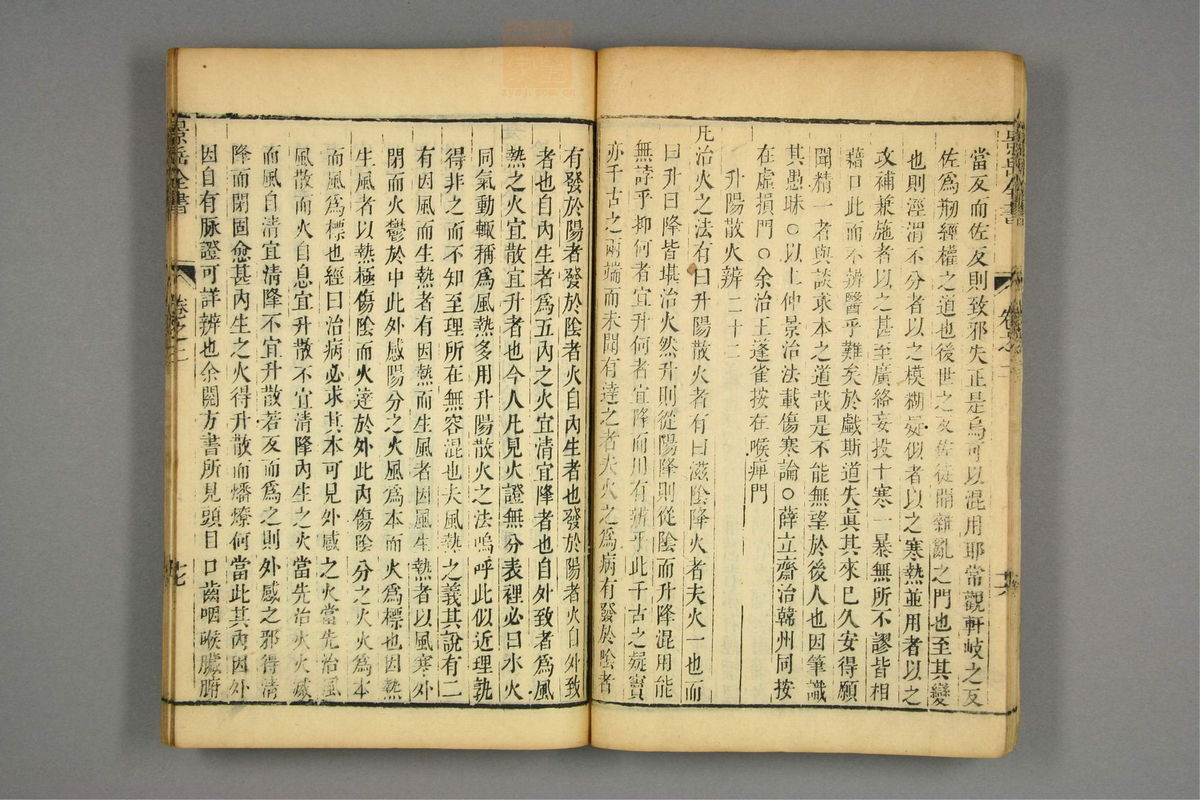 當反而佐反則致邪失正是烏可以混用耶常觀軒岐之反
佐爲刱經權之道也後世之反佐徒開雜亂之門也至其變
也則涇渭不分者以之模糊疑似者以之寒熱並用者以之
攻補兼施者以之甚至廣絡妄投十寒一暴無所不謬皆相
藉口此而不辨醫乎難矣於戲斯道失眞其來已久安得願
聞精一者與談求本之道哉是不能無望於後人也因筆識
其愚昧○以上仲景治法載傷寒論○薛立齋治韓州同按
在虛損門○余治王蓬雀按在喉痺門
升陽散火辨二十二
凡治火之法有曰升陽散火者有曰滋陰降火者夫火一也而
曰升曰降皆堪治火然升則從陽降則從陰而升降混用能
無誖乎抑何者宜升何者宜降而用有辨乎此千古之疑竇
亦千古之兩端而未聞有達之者夫火之爲病有發於陰者
有發於陽者發於陰者火自內生者也發於陽者火自外致
者也自內生者爲五內之火宜清宜降者也自外致者爲風
熱之火宜散宜升者也今人凡見火證無分表裡必曰木火
同氣動輒稱爲風熱多用升陽散火之法嗚呼此似近理孰
得非之而不知至理所在無容混也夫風熱之義其說有二
有因風而生熱者有因熱而生風者因風生熱者以風寒外
閉而火鬱於中此外感陽分之火風爲本而火爲標也因熱
生風者以熱極傷陰而火達於外此內傷陰分之火火爲本
而風爲標也經曰治病必求其本可見外感之火當先治風
風散而火自息宜升散不宜清降內生之火當先治火火滅
而風自清宜清降不宜升散若反而爲之則外感之邪得清
降而閉固愈甚內生之火得升散而燔燎何當此其內因外
因自有脉證可詳辨也余閱方書所見頭目口齒咽喉臟腑
景岳全書
卷之二
十七
景岳全書
卷之二